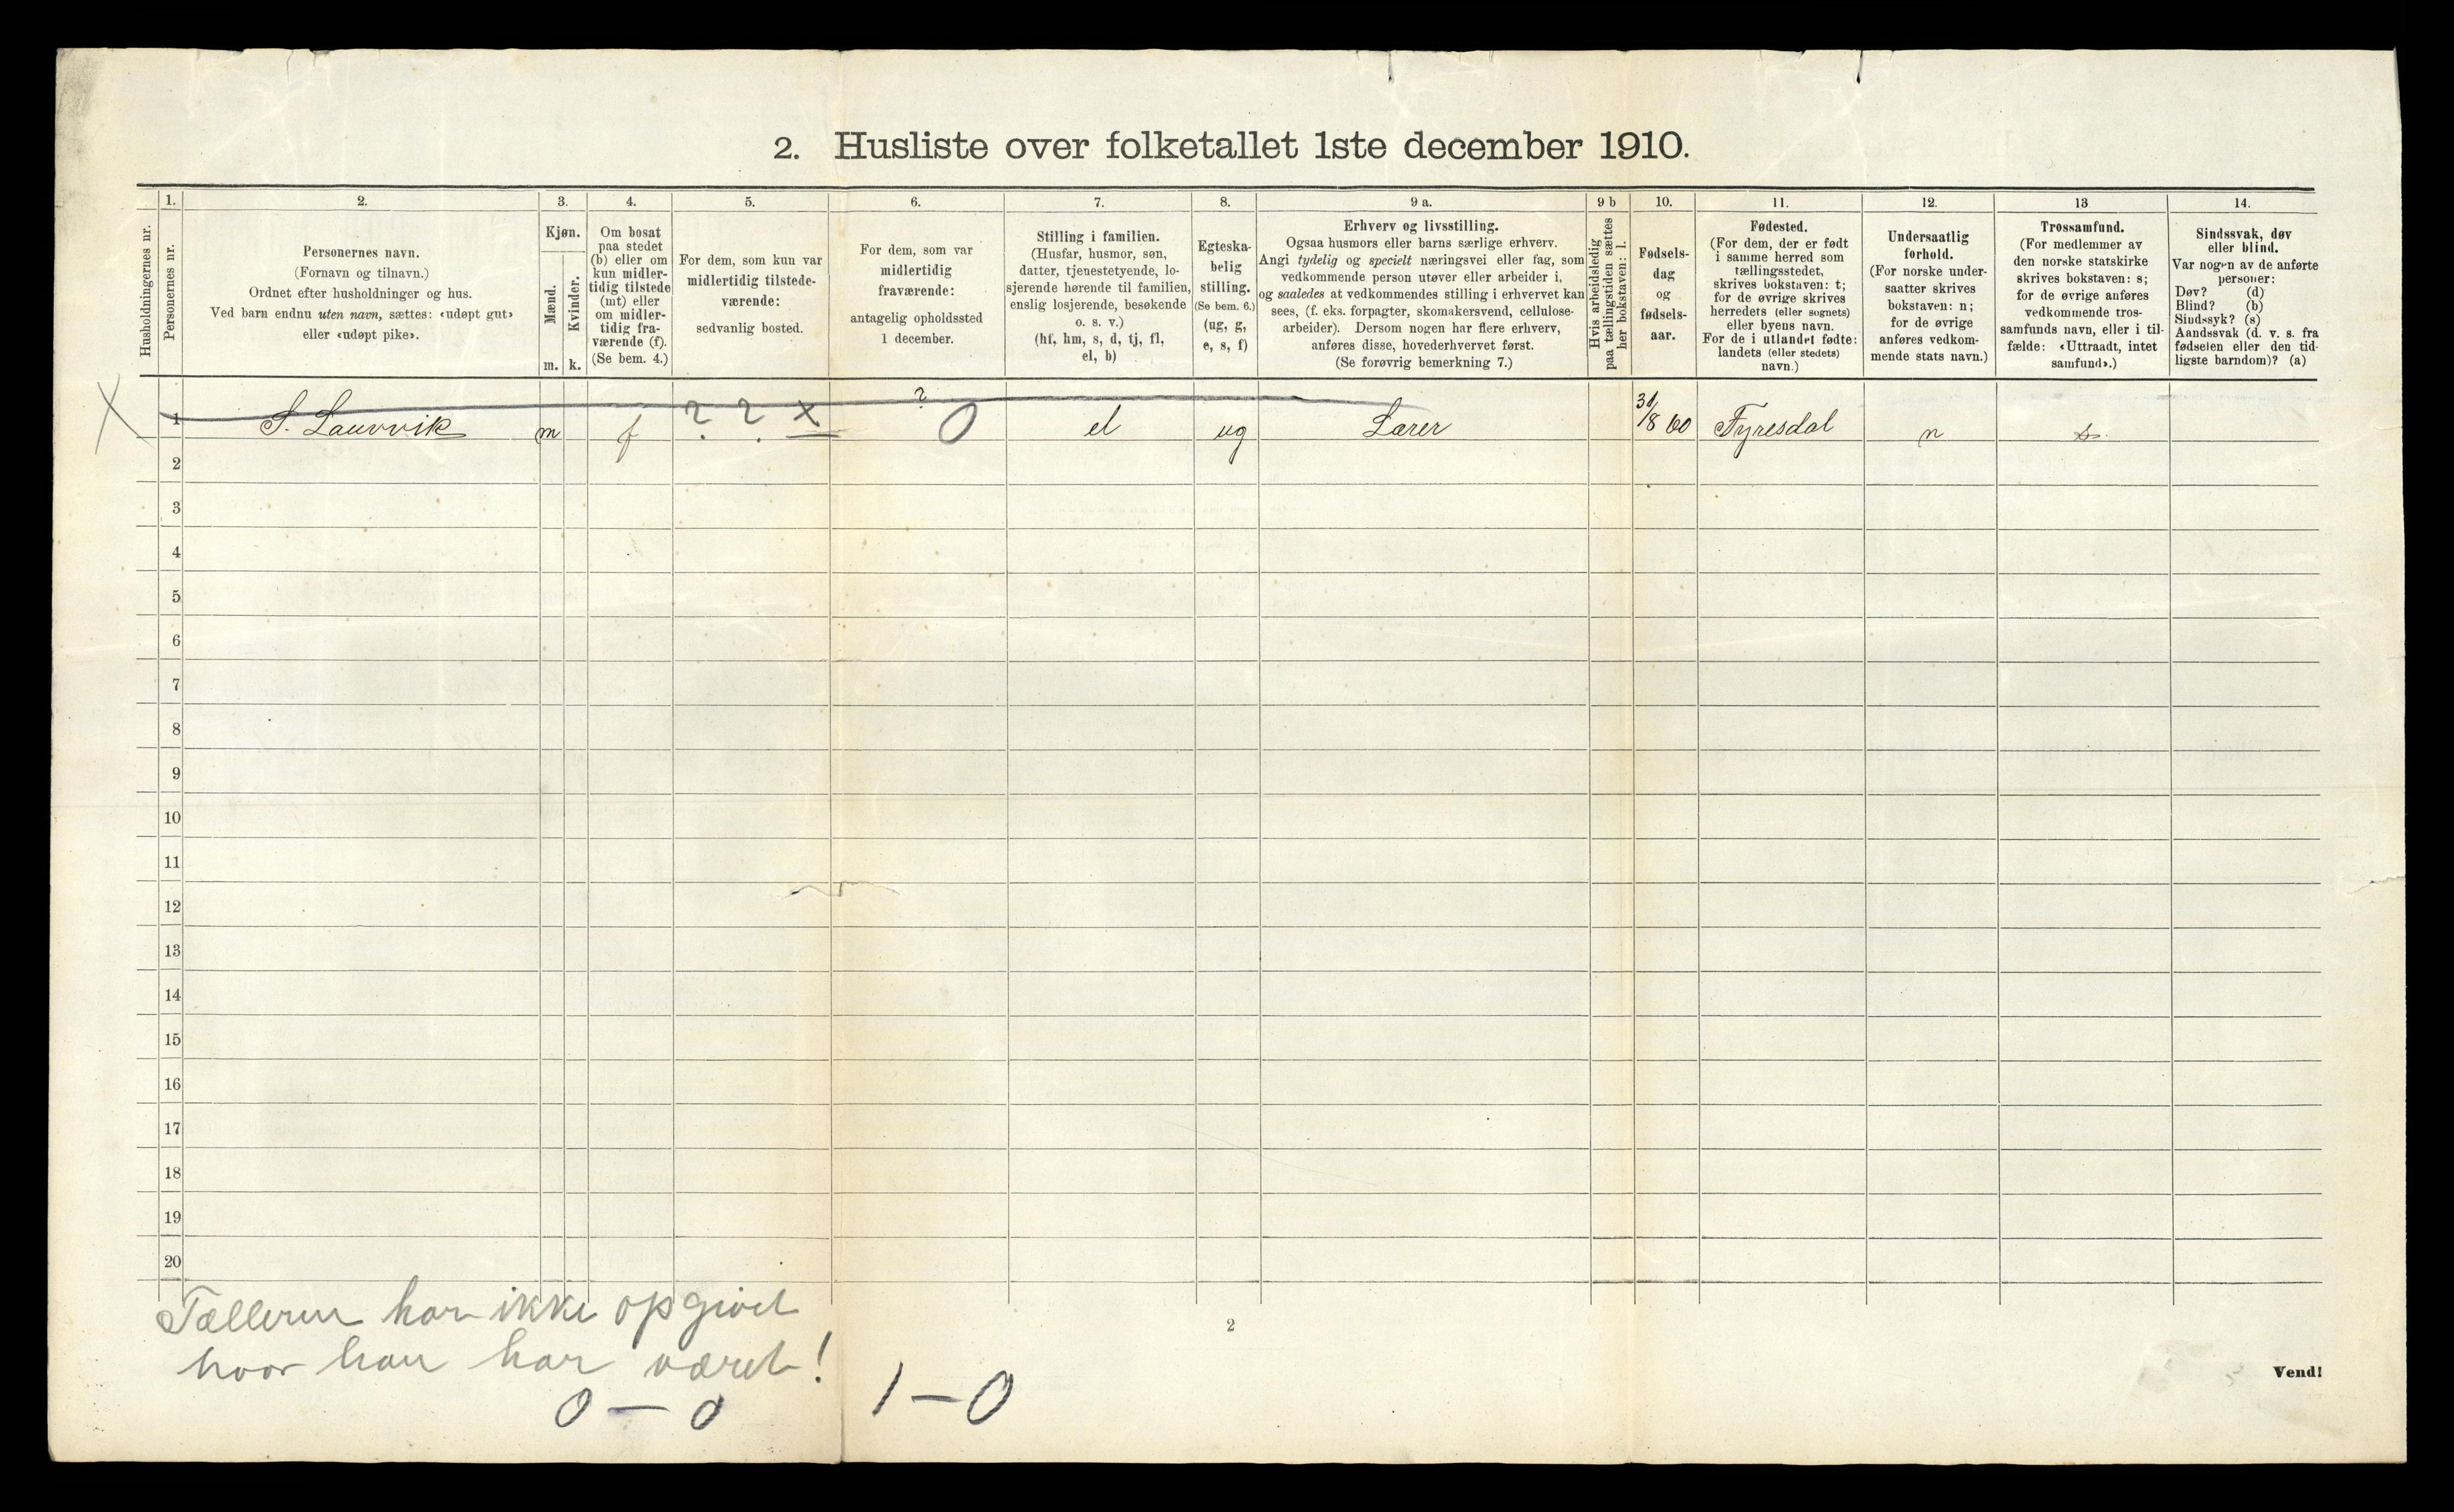 2. Husliste over folketallet 1ste december 1910.
Husholdningernes nr.
1.
Personernes nr.
2.
Personernes navn.
(Fornavn og tilnavn.)
Ordnet efter husholdninger og hus.
Ved barn endnu uten navn, sættes: «udøpt gut»
eller «udøpt pike».
3.
Kjøn.
Mænd.
m.
Kvinder.
k.
4.
Om bosat
paa stedet
(b) eller om
kun midler-
tidig tilstede
(mt) eller
om midler-
tidig fra-
værende (f).
(Se bem. 4.)
5.
For dem, som kun var
midlertidig tilstede-
værende:
sedvanlig bosted.
6.
For dem, som var
midlertidig
fraværende:
antagelig opholdssted
1 december.
7.
Stilling i familien.
(Husfar, husmor, søn,
datter, tjenestetyende, lo-
sjerende hørende til familien,
enslig losjerende, besøkende
o. s. v.)
(hf, hm, s, d, tj, fl,
el, b)
8.
Egteska-
belig
stilling.
(Se bem. 6.)
(ug, g,
e, s, f)
9 a.
Erhverv og livsstilling.
Ogsaa husmors eller barns særlige erhverv.
Angi tydelig og specielt næringsvei eller fag, som
vedkommende person utøver eller arbeider i,
og saaledes at vedkommendes stilling i erhvervet kan
sees, (f. eks. forpagter, skomakersvend, cellulose-
arbeider). Dersom nogen har flere erhverv,
anføres disse, hovederhvervet først.
(Se forøvrig bemerkning 7.)
9 b
Hvis arbeidsledig
paa tællingstiden sættes
her bokstaven: l.
10.
Fødsels-
dag
og
fødsels-
aar.
11.
Fødested.
(For dem, der er født
i samme herred som
tællingsstedet,
skrives bokstaven: t;
for de øvrige skrives
herredets (eller sognets)
eller byens navn.
For de i utlandet fødte:
landets (eller stedets)
navn.)
12.
Undersaatlig
forhold.
(For norske under-
saatter skrives
bokstaven: n;
for de øvrige
anføres vedkom-
mende stats navn.)
13
Trossamfund.
(For medlemmer av
den norske statskirke
skrives bokstaven: s;
for de øvrige anføres
vedkommende tros-
samfunds navn, eller i til-
fælde: «Uttraadt, intet
samfund».)
14.
Sindssvak, døv
eller blind.
Var nogen av de anførte
personer:
Døv? (d)
Blind? (b)
Sindssyk? (s)
Aandssvak (d. v. s. fra
fødselen eller den tid-
ligste barndom)? (a)
X 1 S. Lauvvik m f ? ? X ? 0 el ug Lærer 31/8 60 Fyresdal n s.
2
3
4
5
6
7
8
9
10
11
12
13
14
15
16
17
18
19
20
Tælleren har ikke opgivet
hvor han har været!
0 — 0 1 — 0
2
Vend!